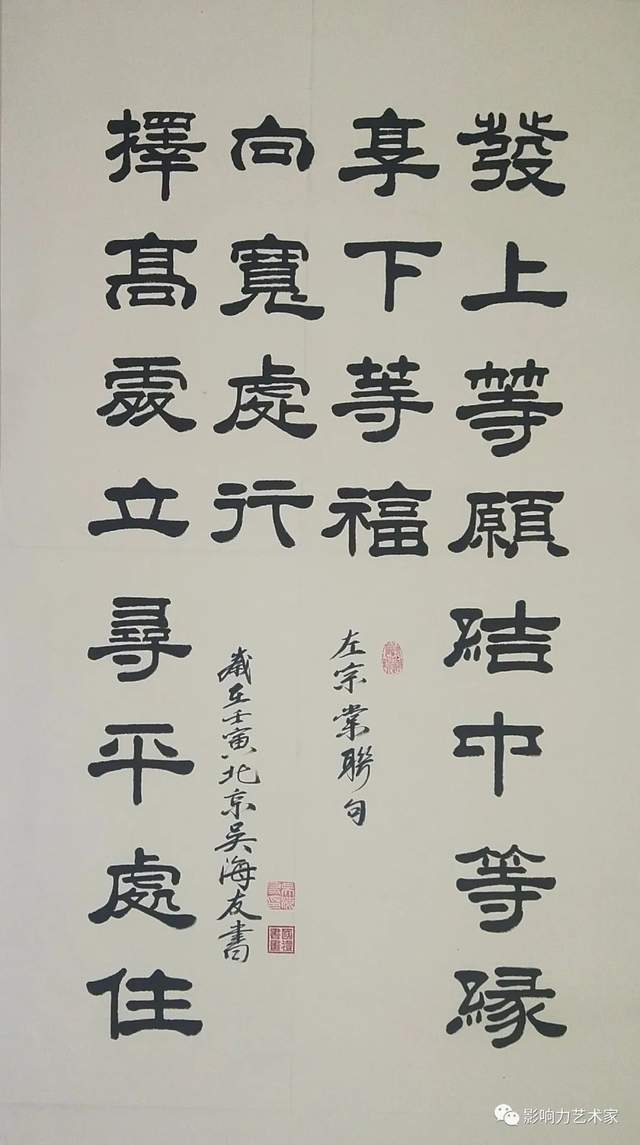 發上等願結中等緣
享下等福
左宗棠聯句
擇髙處立尋平處住
向寬處行
歲在壬寅北京吴海友書
影响力艺术家